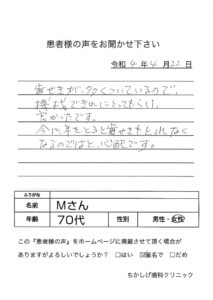 患者様の声をお聞かせ下さい
令和 4 年 4 月 22 日
歯せきが多くついているので、
機械できれいにとってもらい、
良かったです。
今に年をとると歯せきもとれなく
なるのではと心配です。
ふりがな
名前 Mさん
年齢 70代 性別 男性・女性
この『患者様の声』をホームページに掲載させて頂く場合が
ありますがよろしいでしょうか? □はい ☑匿名で □だめ
ちかしげ歯科クリニック